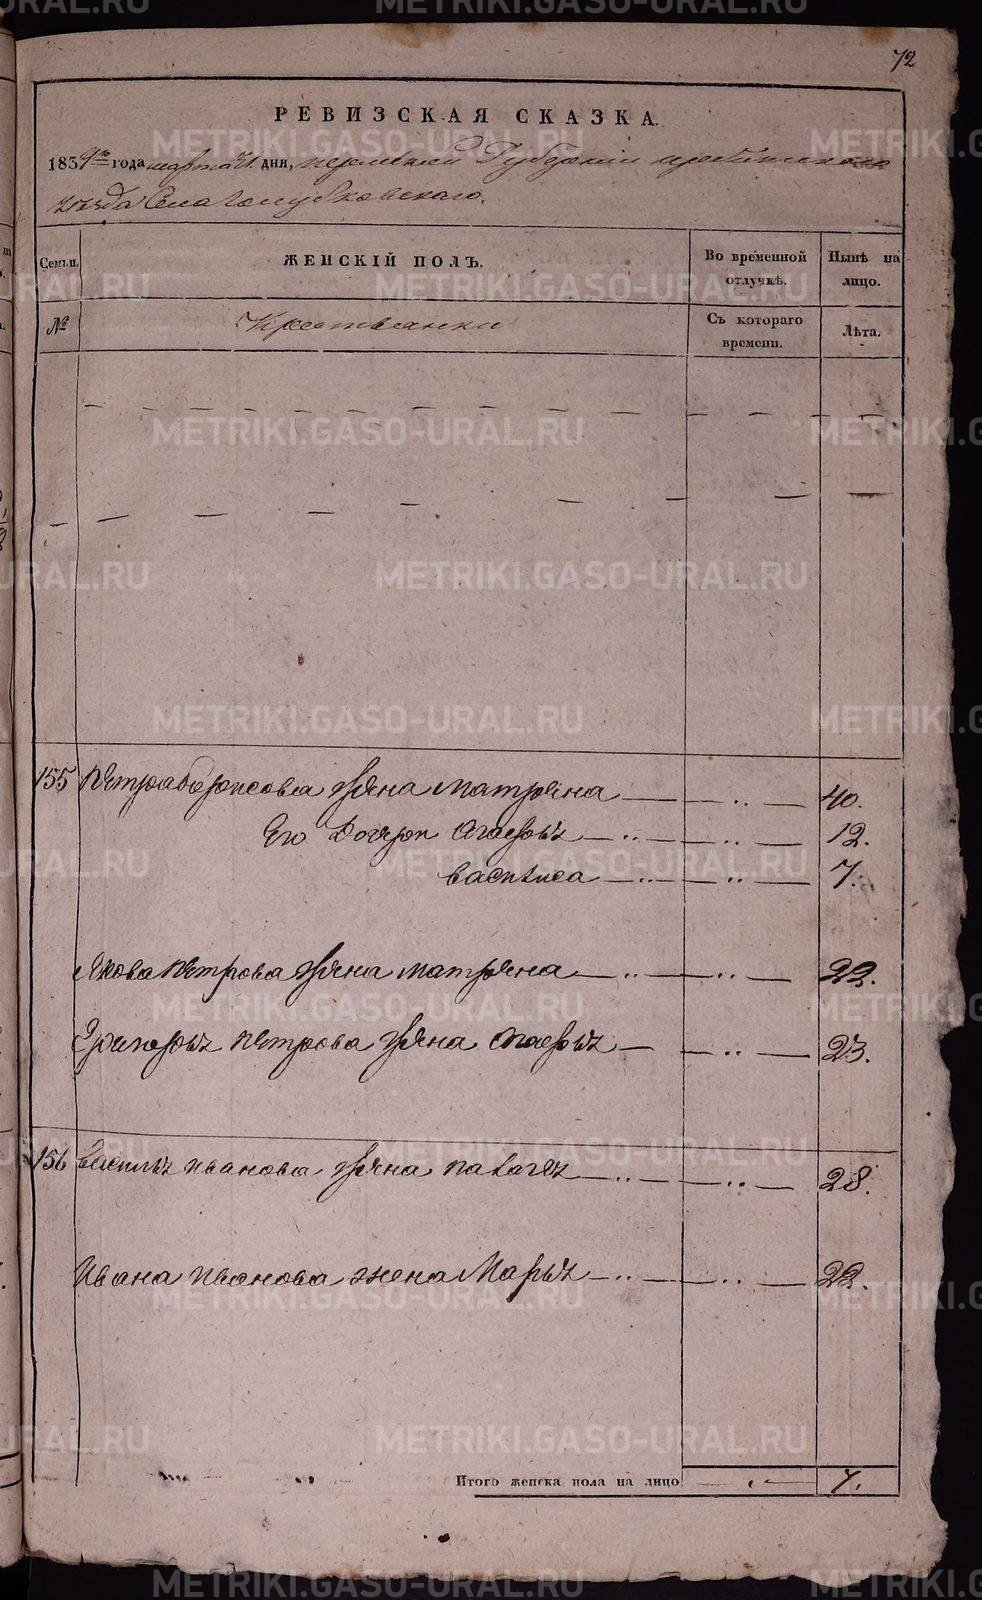 72
РЕВИЗСКАЯ СКАЗКА.
1834 го года марта 21 дня, пермской Губернии ирбитского
уезда Села голубковскаго.
Семьи. ЖЕНСКІЙ ПОЛЪ. Во временной отлучкѣ. Нынѣ на лицо.
№ Крестьянки Съ котораго времени. Лѣта.
155 Петра борисова жена матрена 40.
Его Дочери 12.
васѣлиса 7.
Якова петрова жена матрена 22.
Григорья петрова жена 23.
156 василья иванова жена палагея 28.
Ивана иванова жена Марья 22.
Итого женска пола на лицо 7.
METRIKI.GASO-URAL.RU